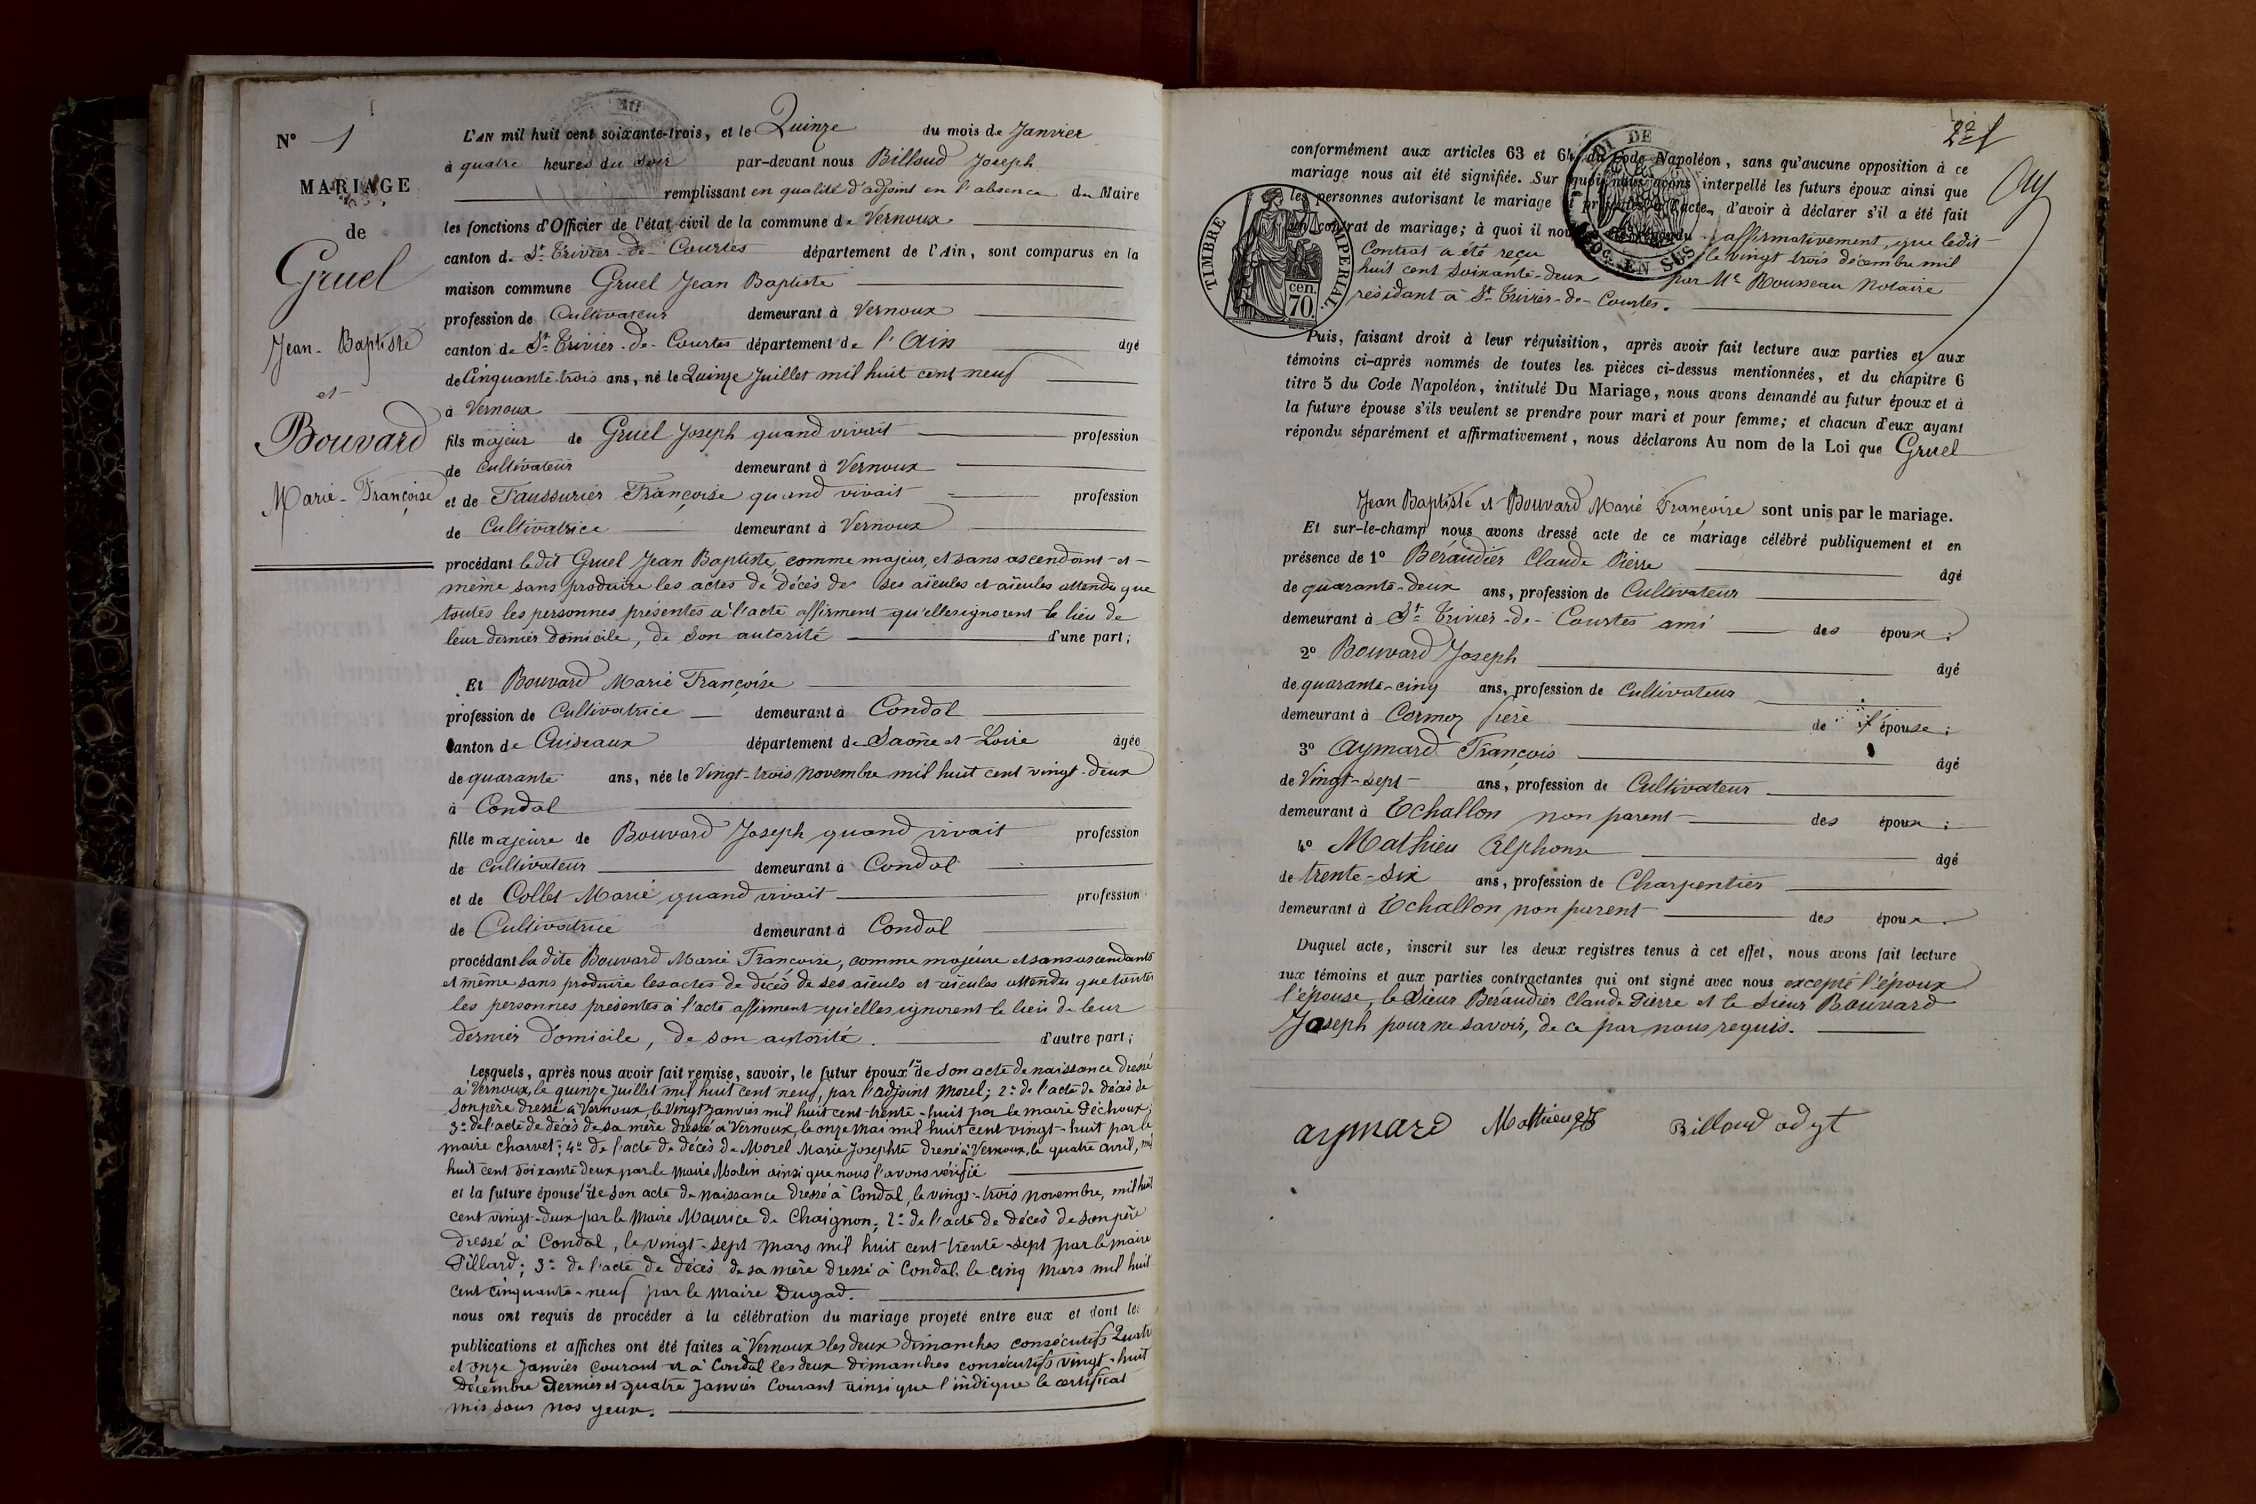 N° 1
MARIAGE
de
Gruel
Jean-Baptiste
et
Bouvard
Marie-Françoise
L'AN mil huit cent soixante-trois, et le Quinze du mois de Janvier
à quatre heures du soir par-devant nous Billoud Joseph
remplissant en qualité d'adjoint en l'absence du Maire
les fonctions d'Officier de l'état civil de la commune de Vernoux
canton de St Trivier-de-Courtes département de l'Ain, sont comparus en la
maison commune Gruel Jean Baptiste
profession de Cultivateur demeurant à Vernoux
canton de St Trivier-de-Courtes département de l'Ain âgé
de Cinquante-trois ans, né le Quinze Juillet mil huit cent neuf
à Vernoux
fils majeur de Gruel Joseph quand vivait profession
de Cultivateur demeurant à Vernoux
et de Faussurier Françoise quand vivait profession
de Cultivatrice demeurant à Vernoux
procédant ledit Gruel Jean Baptiste, comme majeur, et sans ascendant et
même sans produire les actes de décès de ses aïeuls et aïeules attendu que
toutes les personnes présentes à l'acte affirment qu'elles ignorent le lieu de
leur dernier domicile, de son autorité d'une part;
Et Bouvard Marie Françoise
profession de Cultivatrice demeurant à Condal
canton de Cuiseaux département de Saône et Loire âgée
de quarante ans, née le Vingt-trois Novembre mil huit cent vingt-deux
à Condal
fille majeure de Bouvard Joseph quand vivait profession
de Cultivateur demeurant à Condal
et de Collet Marie quand vivait profession
de Cultivatrice demeurant à Condal
procédant la dite Bouvard Marie Françoise, comme majeure et sans ascendants
et même sans produire les actes de décès de ses aïeuls et aïeules attendu que toutes
les personnes présentes à l'acte affirment qu'elles ignorent le lieu de leur
dernier domicile, de son autorité. d'autre part;
Lesquels, après nous avoir fait remise, savoir, le futur époux 1° de son acte de naissance dressé
à Vernoux, le quinze Juillet mil huit cent neuf, par l'adjoint Morel; 2° de l'acte de décès de
son père dressé à Vernoux, le vingt Janvier mil huit cent trente-huit par le maire Déchoux;
3° de l'acte de décès de sa mère dressé à Vernoux, le onze mai mil huit cent vingt-huit par le
maire Charvet; 4° de l'acte de décès de Morel Marie Josephte dressé à Vernoux, le quatre avril, mil
huit cent soixante deux par le maire Molin ainsi que nous l'avons vérifié
et la future épouse 1° de son acte de naissance dressé à Condal, le vingt-trois novembre, mil huit
cent vingt-deux par le Maire Maurice de Chaignon; 2° de l'acte de décès de son père
dressé à Condal, le vingt-sept mars mil huit cent trente-sept par le maire
Pillard; 3° de l'acte de décès de sa mère dressé à Condal, le cinq Mars mil huit
cent cinquante-neuf par le Maire Dugad.
nous ont requis de procéder à la célébration du mariage projeté entre eux et dont les
publications et affiches ont été faites à Vernoux les deux dimanches consécutifs Quatre
et onze Janvier courant et à Condal les deux dimanches consécutifs vingt-huit
Décembre dernier et quatre Janvier courant ainsi que l'indique le certificat
mis sous nos yeux.
conformément aux articles 63 et 64 du Code Napoléon, sans qu'aucune opposition à ce
mariage nous ait été signifiée. Sur quoi nous avons interpellé les futurs époux ainsi que
les personnes autorisant le mariage et présentes à l'acte, d'avoir à déclarer s'il a été fait
un contrat de mariage; à quoi il nous a été répondu affirmativement, que ledit
Contrat a été reçu le vingt trois décembre mil
huit cent soixante-deux par Me Rousseau Notaire
résidant à St Trivier-de-Courtes.
TIMBRE IMPERIAL
70 cen.
EN SUS
Puis, faisant droit à leur réquisition, après avoir fait lecture aux parties et aux
témoins ci-après nommés de toutes les pièces ci-dessus mentionnées, et du chapitre 6
titre 5 du Code Napoléon, intitulé Du Mariage, nous avons demandé au futur époux et à
la future épouse s'ils veulent se prendre pour mari et pour femme; et chacun d'eux ayant
répondu séparément et affirmativement, nous déclarons Au nom de la Loi que Gruel
Jean Baptiste et Bouvard Marie Françoise sont unis par le mariage.
Et sur-le-champ nous avons dressé acte de ce mariage célébré publiquement et en
présence de 1° Béraudier Claude Pierre âgé
de quarante-deux ans, profession de Cultivateur
demeurant à St Trivier-de-Courtes ami des époux;
2° Bouvard Joseph âgé
de quarante-cinq ans, profession de Cultivateur
demeurant à Cormoz frère de l'épouse;
3° Aymard François âgé
de Vingt-sept ans, profession de Cultivateur
demeurant à Echallon non parent des époux;
4° Mathieu Alphonse âgé
de trente-six ans, profession de Charpentier
demeurant à Echallon non parent des époux.
Duquel acte, inscrit sur les deux registres tenus à cet effet, nous avons fait lecture
aux témoins et aux parties contractantes qui ont signé avec nous excepté l'époux
l'épouse, le Sieur Béraudier Claude Pierre et le Sieur Bouvard
Joseph pour ne savoir, de ce par nous requis.
aymard Mathieu Billoud adjt